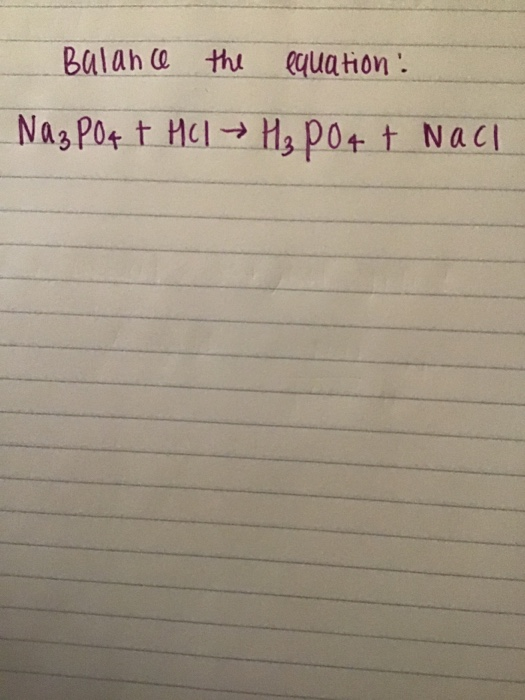 Balance the equation:
Na₃PO₄ + HCl → H₃PO₄ + NaCl